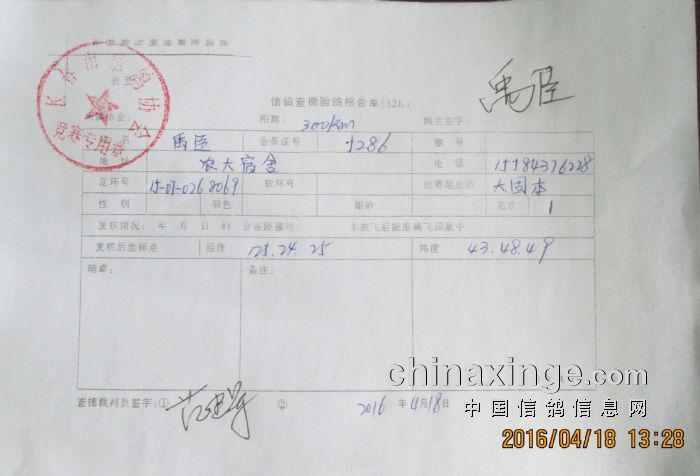 长春市信鸽协会
竞赛专用章
表五
信鸽查棚验鸽报告单(32K)
禹臣
距离: 300km 鸽主签字:
姓名 禹臣 会员证号 J286 棚号
地址 农大宿舍 电话 15184376228
足环号 15-07-0268069 软环号 比赛起止点 大固本
性别 羽色 眼砂 名次 1
复核情况: 年 月 日 时 分在距棚外 米放飞后能准确飞回巢中
复核后坐标点 经度 125.24.25 纬度 43.48.49
暗章: 备注:
查棚裁判员签字:① ② 2016年4月18日
chinaxinge.com
中国信鸽信息网
2016/04/18 13:28